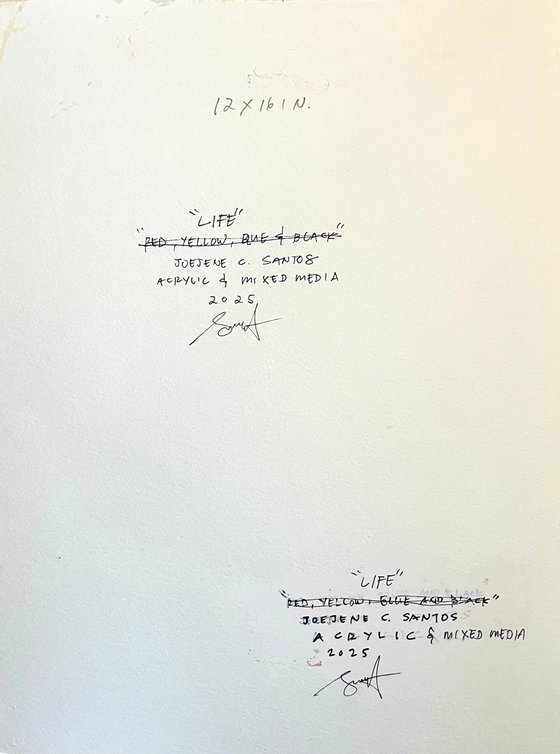 12 X 16 IN.
"LIFE"
"RED, YELLOW, BLUE & BLACK"
JOEJENE C. SANTOS
ACRYLIC & MIXED MEDIA
2025
"LIFE"
"RED, YELLOW, BLUE AND BLACK"
JOEJENE C. SANTOS
ACRYLIC & MIXED MEDIA
2025